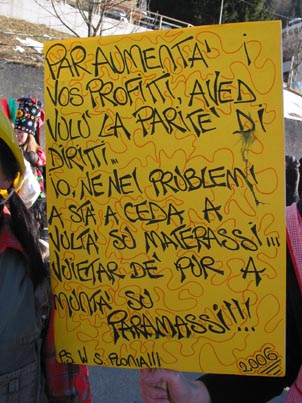 PAR AUMENTA' I
VOS PROFITTI, AVED
VOLÙ LA PARITÈ DI
DIRITTI...
IO, NE NEI PROBLEMI
A STÀ A CEDA A
VOLTÀ SÙ MATERASSI...
VOJETAR DÈ PÙR A
MUNTÀ SÙ
PARAMASSI!!!
PS W S. PLONIA!!!
2006